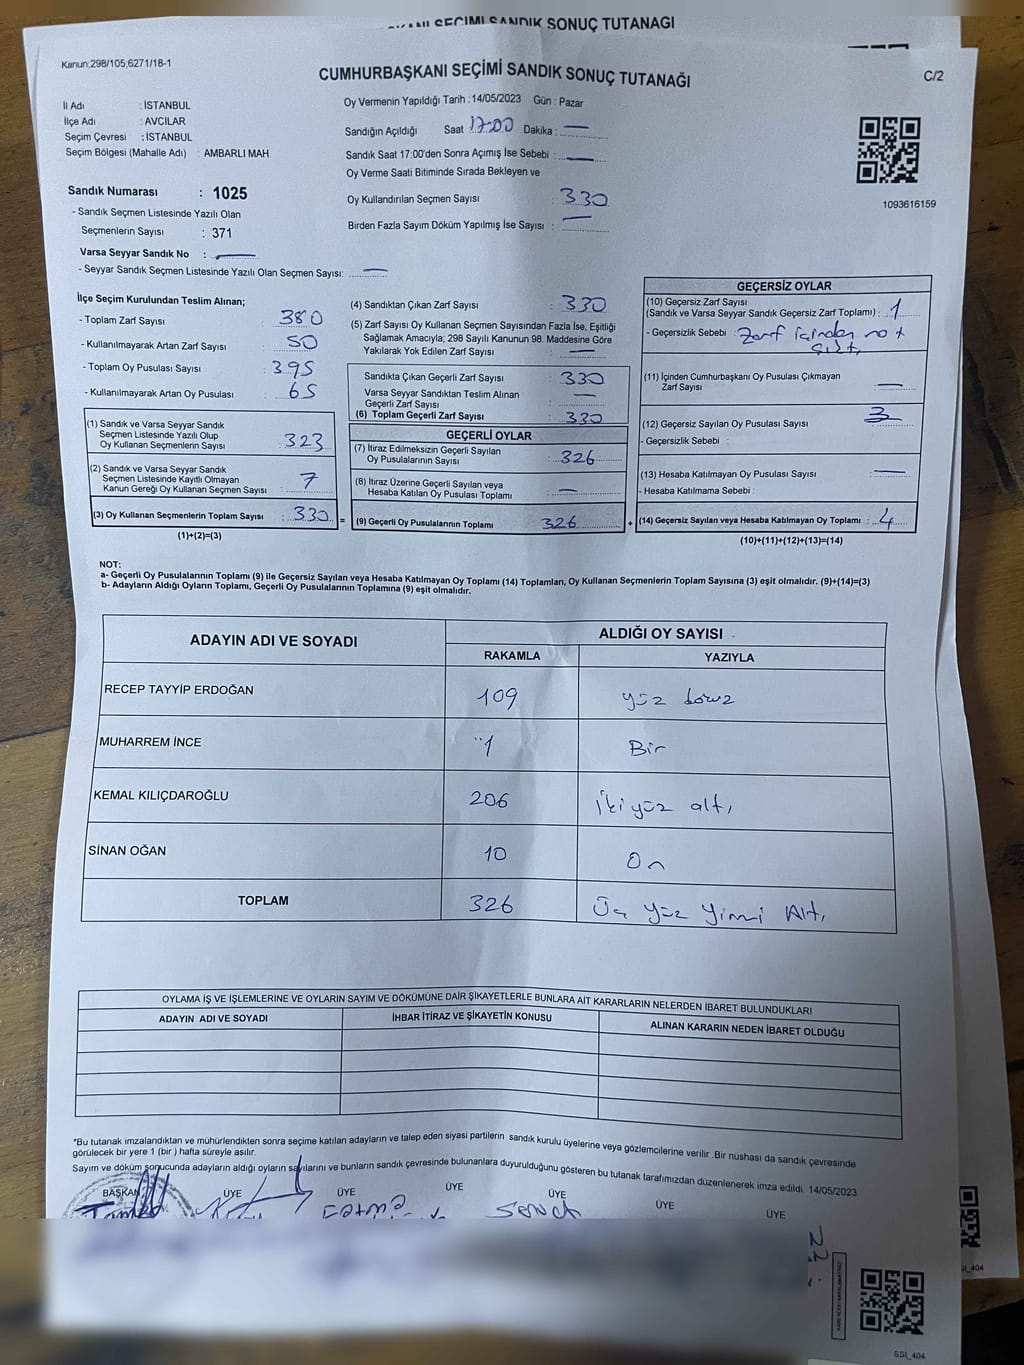 SEÇİMİ SANDIK SONUÇ TUTANAĞI
Kanun;298/105;6271/18-1
CUMHURBAŞKANI SEÇİMİ SANDIK SONUÇ TUTANAĞI
C/2
İl Adı : İSTANBUL
İlçe Adı : AVCILAR
Seçim Çevresi : İSTANBUL
Seçim Bölgesi (Mahalle Adı) : AMBARLI MAH.
Sandık Numarası : 1025
- Sandık Seçmen Listesinde Yazılı Olan
Seçmenlerin Sayısı : 371
Varsa Seyyar Sandık No : —
- Seyyar Sandık Seçmen Listesinde Yazılı Olan Seçmen Sayısı: —
Oy Vermenin Yapıldığı Tarih : 14/05/2023 Gün : Pazar
Sandığın Açıldığı Saat 17:00 Dakika : —
Sandık Saat 17:00'den Sonra Açımış İse Sebebi : —
Oy Verme Saati Bitiminde Sırada Bekleyen ve
Oy Kullandırılan Seçmen Sayısı : 330
Birden Fazla Sayım Döküm Yapılmış İse Sayısı : —
1093616159
İlçe Seçim Kurulundan Teslim Alınan;
- Toplam Zarf Sayısı : 380
- Kullanılmayarak Artan Zarf Sayısı : 50
- Toplam Oy Pusulası Sayısı : 395
- Kullanılmayarak Artan Oy Pusulası : 65
(1) Sandık ve Varsa Seyyar Sandık
Seçmen Listesinde Yazılı Olup
Oy Kullanan Seçmenlerin Sayısı : 323
(2) Sandık ve Varsa Seyyar Sandık
Seçmen Listesinde Kayıtlı Olmayan
Kanun Gereği Oy Kullanan Seçmen Sayısı : 7
(3) Oy Kullanan Seçmenlerin Toplam Sayısı : 330 =
(1)+(2)=(3)
(4) Sandıktan Çıkan Zarf Sayısı : 330
(5) Zarf Sayısı Oy Kullanan Seçmen Sayısından Fazla İse, Eşitliği
Sağlamak Amacıyla; 298 Sayılı Kanunun 98. Maddesine Göre
Yakılarak Yok Edilen Zarf Sayısı : —
Sandıkta Çıkan Geçerli Zarf Sayısı : 330
Varsa Seyyar Sandıktan Teslim Alınan
Geçerli Zarf Sayısı : —
(6) Toplam Geçerli Zarf Sayısı : 330
GEÇERLİ OYLAR
(7) İtiraz Edilmeksizin Geçerli Sayılan
Oy Pusulalarının Sayısı : 326
(8) İtiraz Üzerine Geçerli Sayılan veya
Hesaba Katılan Oy Pusulası Toplamı : —
(9) Geçerli Oy Pusulalarının Toplamı 326 +
GEÇERSİZ OYLAR
(10) Geçersiz Zarf Sayısı
(Sandık ve Varsa Seyyar Sandık Geçersiz Zarf Toplamı) : 1
- Geçersizlik Sebebi : Zarf içinden not
çıktı
(11) İçinden Cumhurbaşkanı Oy Pusulası Çıkmayan
Zarf Sayısı : —
(12) Geçersiz Sayılan Oy Pusulası Sayısı : 3
- Geçersizlik Sebebi :
(13) Hesaba Katılmayan Oy Pusulası Sayısı : —
- Hesaba Katılmama Sebebi :
(14) Geçersiz Sayılan veya Hesaba Katılmayan Oy Toplamı : 4
(10)+(11)+(12)+(13)=(14)
NOT:
a- Geçerli Oy Pusulalarının Toplamı (9) ile Geçersiz Sayılan veya Hesaba Katılmayan Oy Toplamı (14) Toplamları, Oy Kullanan Seçmenlerin Toplam Sayısına (3) eşit olmalıdır. (9)+(14)=(3)
b- Adayların Aldığı Oyların Toplamı, Geçerli Oy Pusulalarının Toplamına (9) eşit olmalıdır.
ADAYIN ADI VE SOYADI
ALDIĞI OY SAYISI
RAKAMLA YAZIYLA
RECEP TAYYİP ERDOĞAN 109 yüz dokuz
MUHARREM İNCE 1 Bir
KEMAL KILIÇDAROĞLU 206 ikiyüz altı
SİNAN OĞAN 10 On
TOPLAM 326 Üç yüz Yirmi Altı
OYLAMA İŞ VE İŞLEMLERİNE VE OYLARIN SAYIM VE DÖKÜMÜNE DAİR ŞİKAYETLERLE BUNLARA AİT KARARLARIN NELERDEN İBARET BULUNDUKLARI
ADAYIN ADI VE SOYADI İHBAR İTİRAZ VE ŞİKAYETİN KONUSU ALINAN KARARIN NEDEN İBARET OLDUĞU
*Bu tutanak imzalandıktan ve mühürlendikten sonra seçime katılan adayların ve talep eden siyasi partilerin sandık kurulu üyelerine veya gözlemcilerine verilir .Bir nüshası da sandık çevresinde
görülecek bir yere 1 (bir ) hafta süreyle asılır.
Sayım ve döküm sonucunda adayların aldığı oyların sayılarını ve bunların sandık çevresinde bulunanlara duyurulduğunu gösteren bu tutanak tarafımızdan düzenlenerek imza edildi. 14/05/2023
BAŞKAN ÜYE ÜYE ÜYE ÜYE ÜYE ÜYE
Fatma
SSI_404